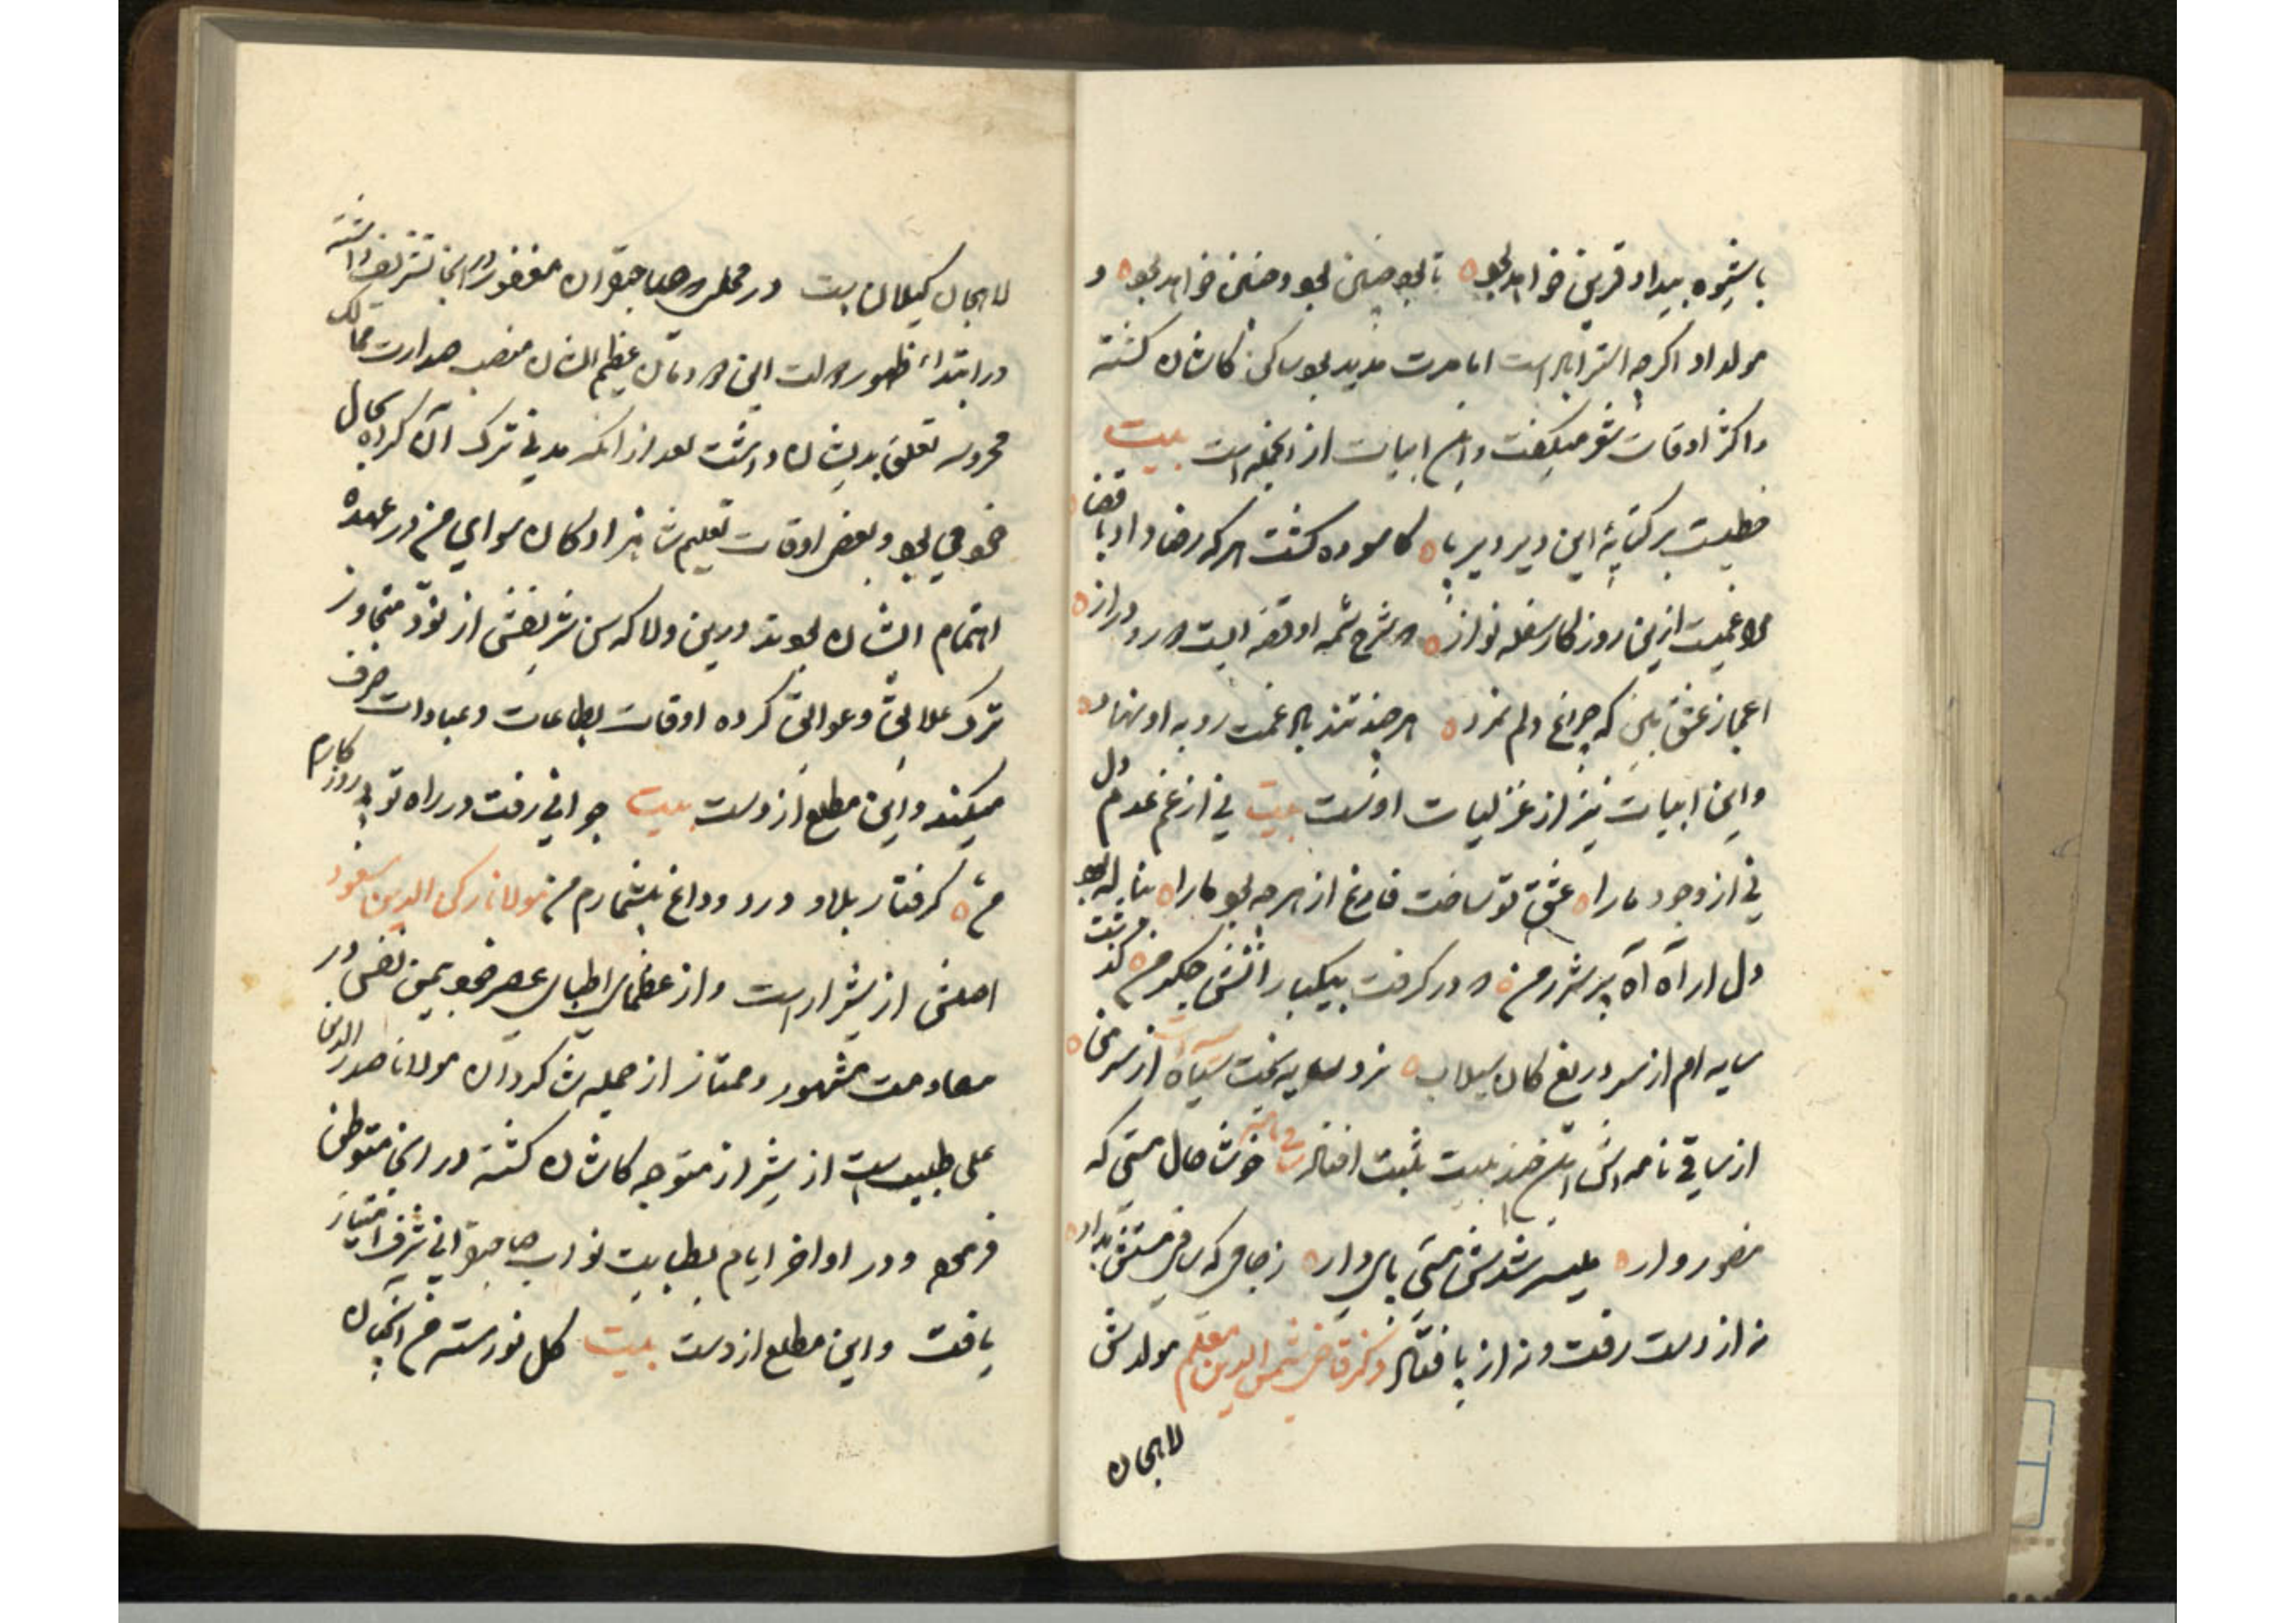 با شیوه بیداد قرین خواهد بود تا بود چنین بود و چنین خواهد بود و
مولد او اگرچه استراباد است اما مدت مدید بود ساکن کاشان گشته
و اکثر اوقات شعر میگفت و این ابیات از انجمله است بیت
خطیست بر کتابهٔ این دیر دیر پا کاسوده گشت هر که رضا داد با قضا
مرا غمیست ازین روزگار سفله نواز که شرح شمه او قصه ایست دور و دراز
اعجاز عشق بین که چراغ دلم نمرد هر چند تند باد غمت رو به او نهاد
و این ابیات نیز از غزلیات اوست بیت نی از غم عدم دل
نی از وجود مارا عشق تو ساخت فارغ از هر چه بود مارا
دل ار آه آه پر شرر من که در گرفت بیکبار آتش جگر من گذشت
سایه ام از سر دریغ کان سیلاب نزد سایه بخت سیاه از سر من
از ساقی نامه اش این چند بیت ثبت افتاد ساقی نامه خوشا حال مستی که
منصوروار میسر شدش مستی پای دار ز جامی که ساقی مستش بداد
نه از دست رفت و نه از پا فتاد ذکر قاضی شمس الدین معلم مولدش
لاهجان
لاهجان گیلان است در مجلس صاحبقران مغفور در انجا تشریف داشته
در ابتداء ظهور دولت این دودمان عظیم الشان منصب صدارت ممالک
محروسه تعلق بدیشان داشت بعد از انکه مدتی ترک آن کرده بحال
خود می بود و بعضی اوقات تعلیم شاهزادگان سوای من در عهده
اهتمام ایشان بودند درین ولا که سن شریفش از نود متجاوز
ترک علایق و عوایق کرده اوقات بطاعات و عبادات صرف
میکند و این مطلع از وست بیت جوانی رفت در راه تو روزگارم
من گرفتار بلا و درد و داغ بیشمارم من مولانا رکن الدین مسعود
اصلش از شیراز است و از عظمای اطبای عصر خود بیمن نفس در
معاومت مشهور و ممتاز از جمله شاگردان مولانا صدر الدین
علی طبیب است از شیراز متوجه کاشان گشته در انجا متوطن
و در اواخر ایام بطبابت نواب صاحبقرانی شرف امتیاز
یافت و این مطلع از وست بیت گل نورسته من آنچنان